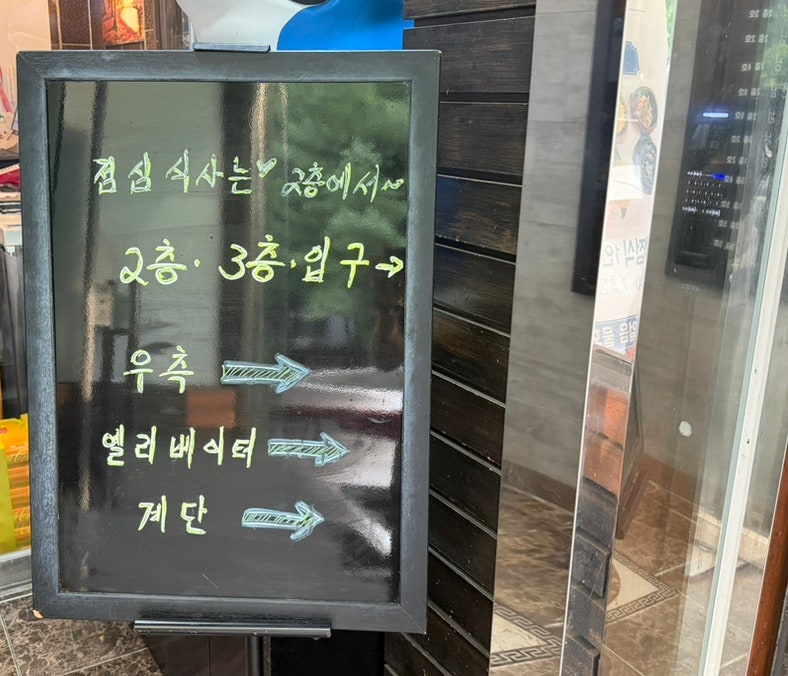 점심 식사는♥ 2층에서~
2층· 3층·입구→
우측 →
엘리베이터 →
계단 →